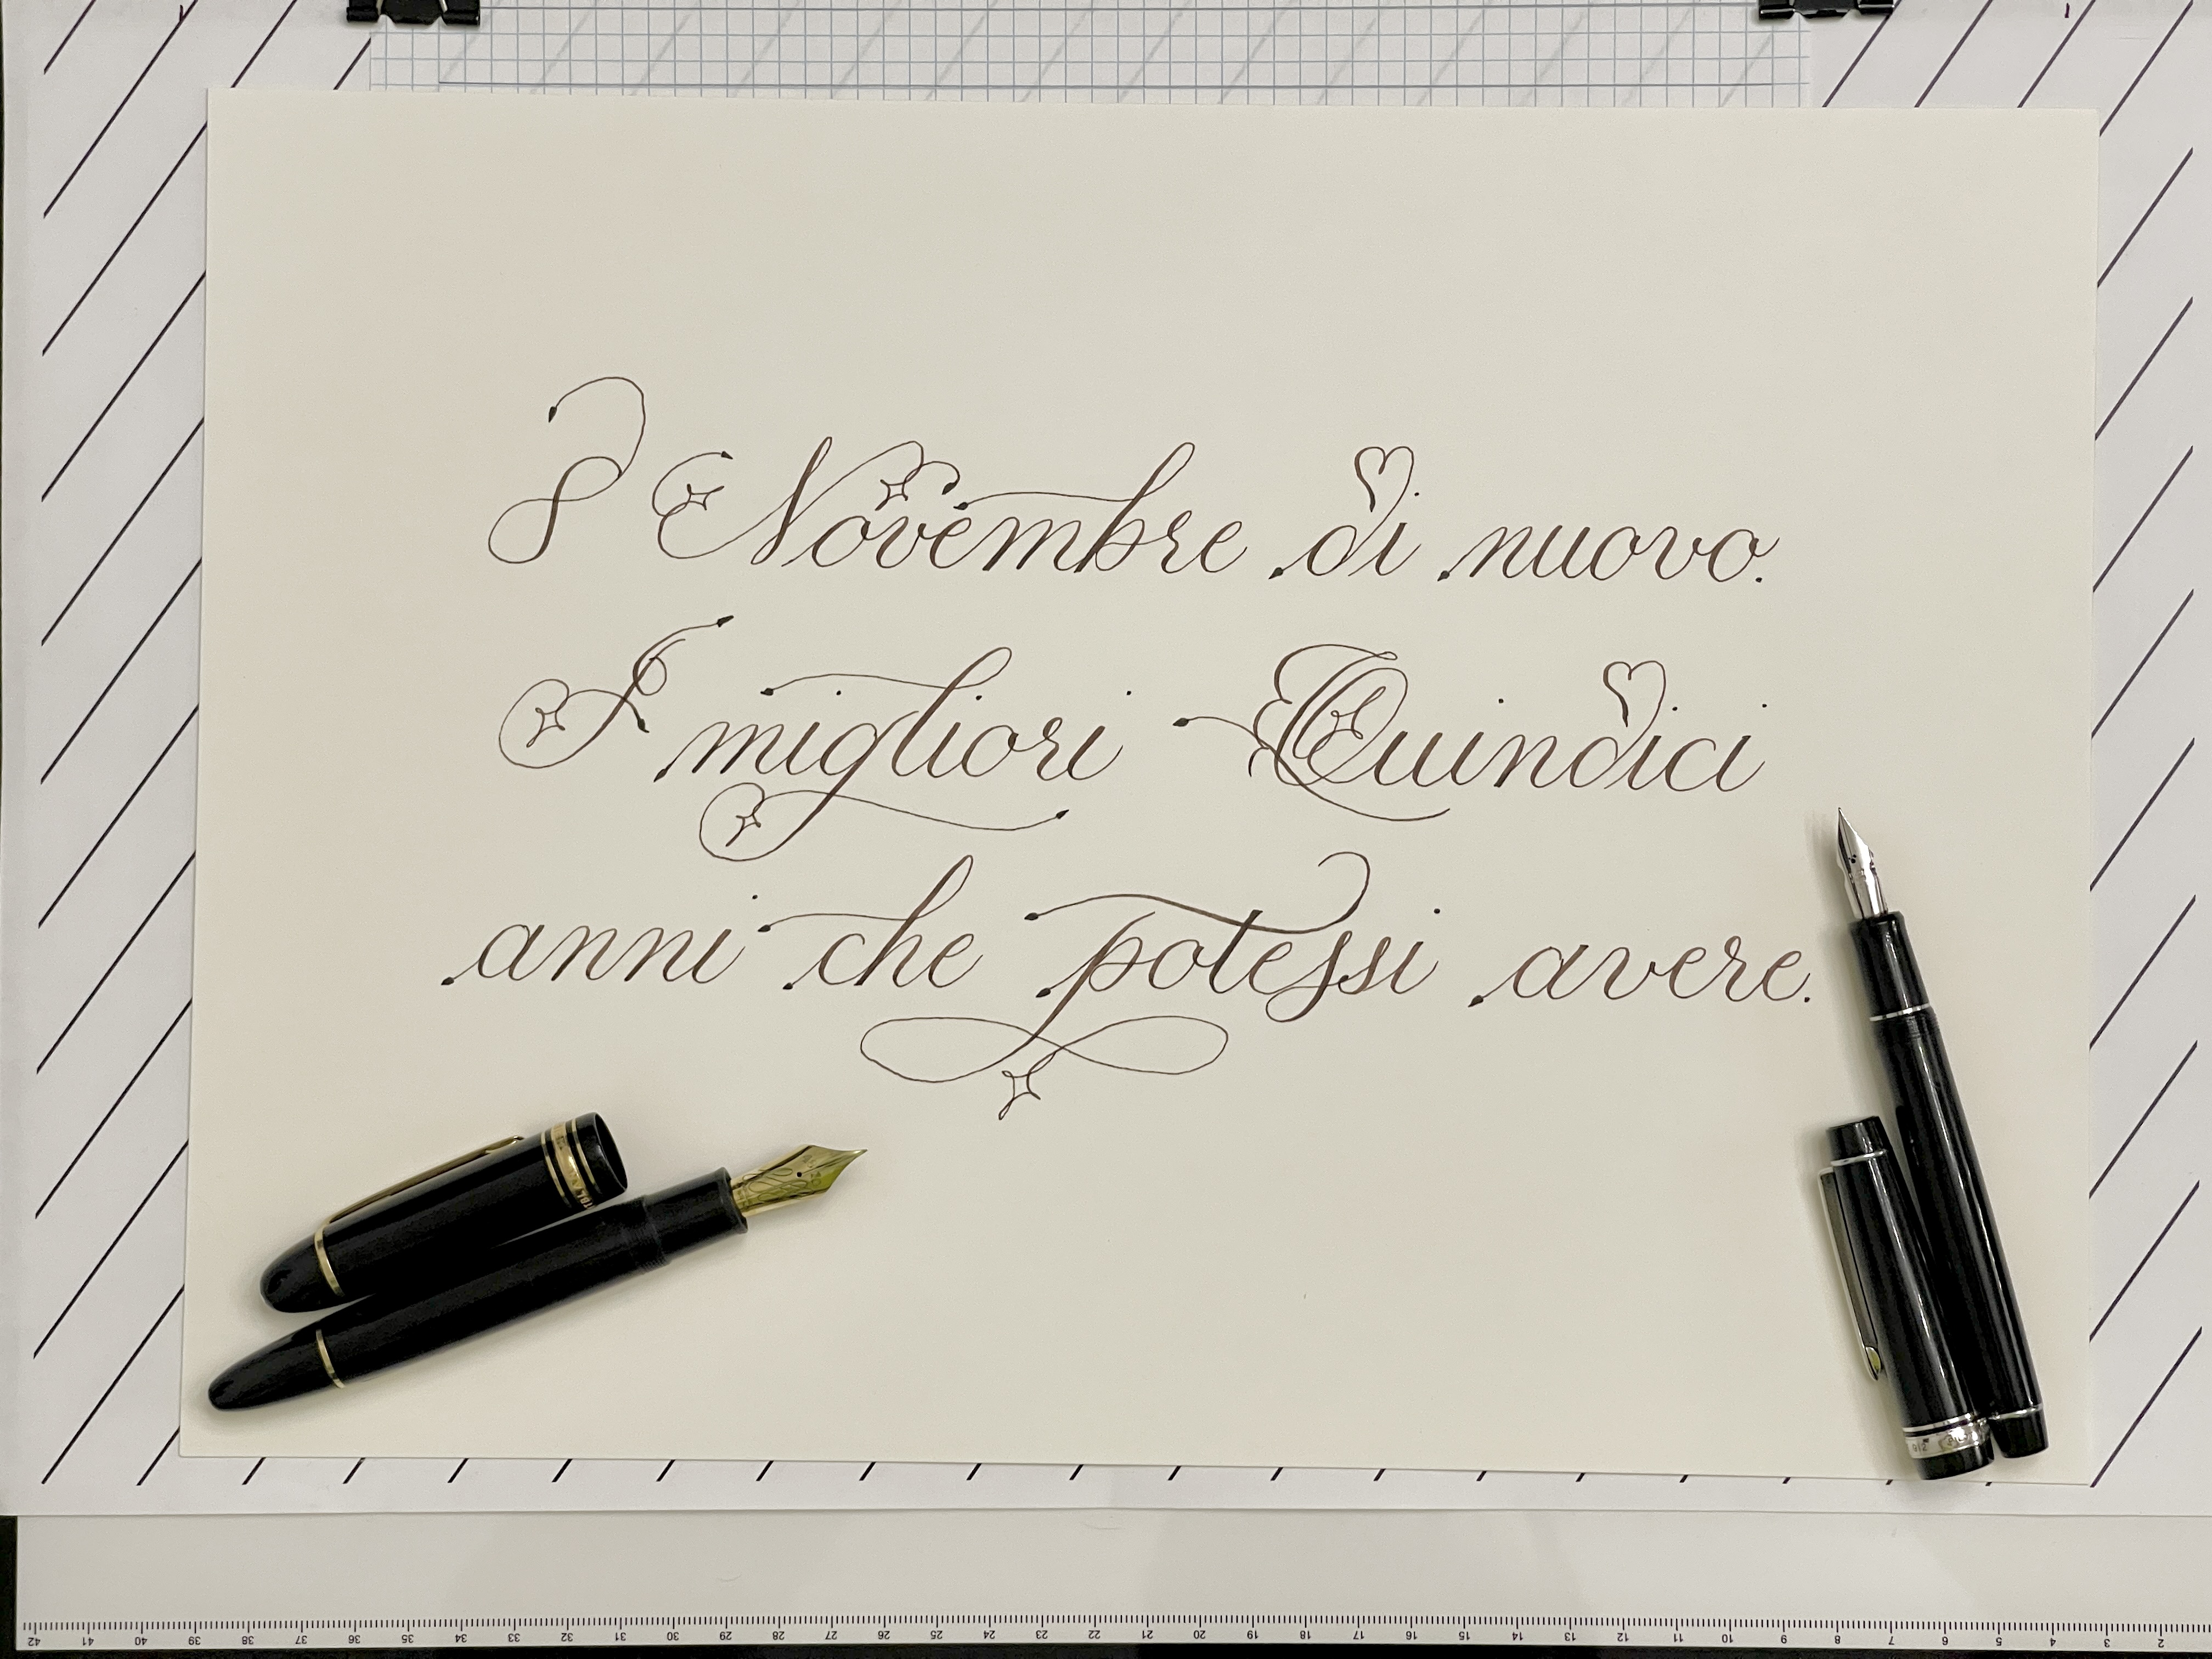 8 Novembre di nuovo.
I migliori Quindici
anni che potessi avere.
42 41 40 39 38 37 36 35 34 33 32 31 30 29 28 27 26 25 24 23 22 21 20 19 18 17 16 15 14 13 12 11 10 9 8 7 6 5 4 3 2